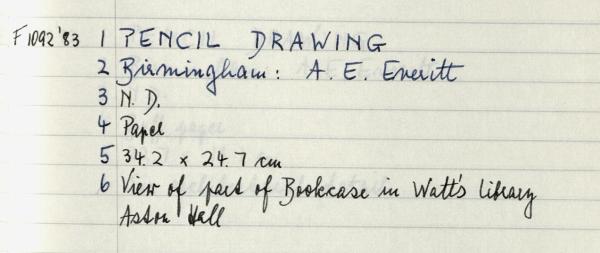 F1092'83 1 PENCIL DRAWING
2 Birmingham: A. E. Everitt
3 N.D.
4 Paper
5 34.2 x 24.7 cm
6 View of part of Bookcase in Watt's library
Aston Hall